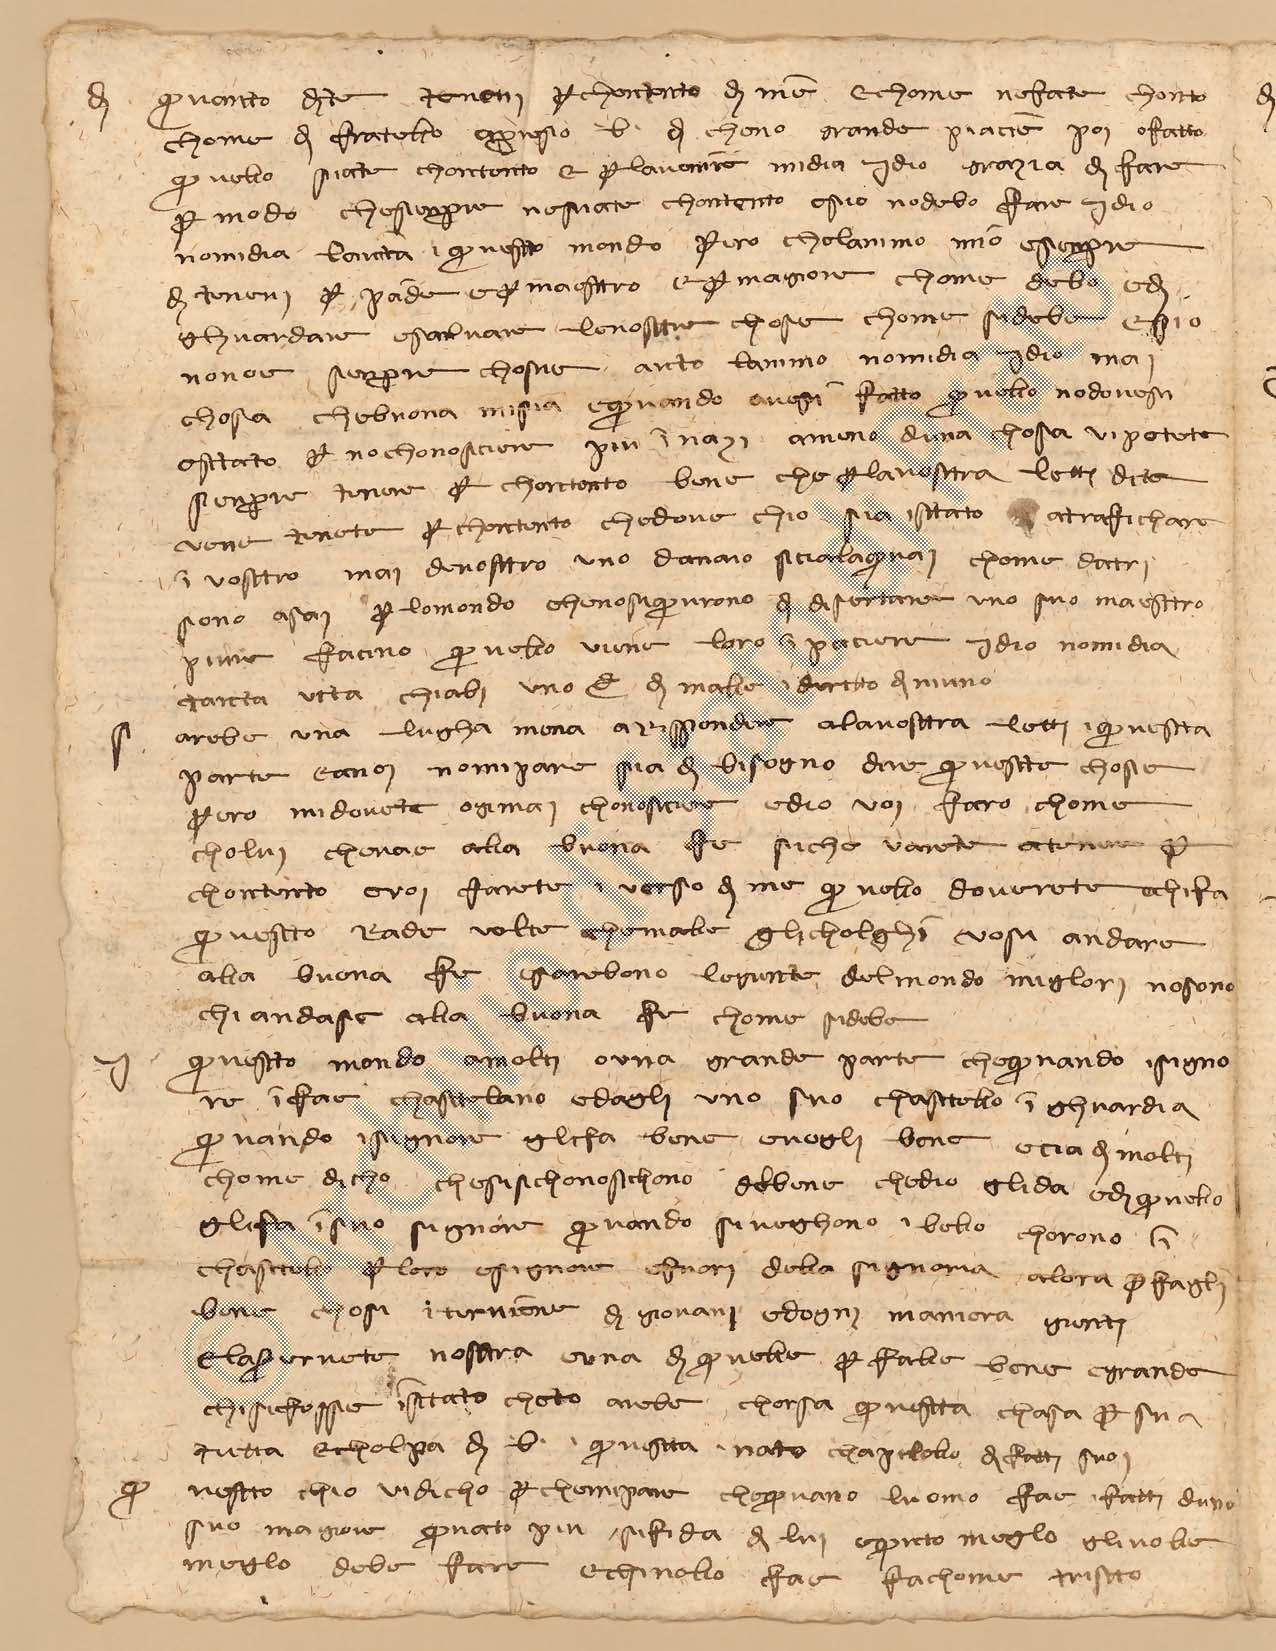 di quanto dite tenervi per chontento di me e chome ne fate chonto
chome di fratello apreso b. di che no grande piacie poi o fatto
quello siate chontento e per lavenire mi dia idio grazia di fare
per modo che senpre ne siate chontento e s io nodebo fare idio
nomi dia lunita i questo mondo pero che lanimo mio e senpre
di tenervi per padre e per maestro e per magiore chome debo e di
ghuardare e salvare le vostre chose chome si debe e s io
none senpre chosie anto lanimo nomi dia idio mai
chosa che buona mi sia e quando avesi fatto quello no dovesi
estato per no chonosciere piu inazi ameno duna chosa vi potete
senpre tenere per chontento bene che per la vostra letti dite
vene tenete per chontento che dove chio sia istato a trafichare
i vostro mai de vostro uno danaio si cialaquai chome datri
sono asai per lo mondo che no si qurono di disertare uno suo maestro
pure facino quello viene loro i paciere idio nomi dia
tanta vita chi abi uno d di malle idretto di niuno
s. arebe una lugha mena a rispondere a la vostra letti i questa
parte e anoi nomi pare sia di bisogno dire queste chose
pero mi dovete ogimai chonosciere ed io voi faro chome
cholui che vae alla buona fe siche varete a tenere per
chontento e voi farete i verso di me quello doverete e chi fa
questo rade volte che malle gli cholghi vosi andare
alla buona fe e sarebono le giente del mondo migliori no sono
chi andase alla buona fe chome si debe
i questo mondo a molti o una grande parte che quando i signo
re i fae chastelano e dagli uno suo chastello i ghuardia
quando i signore gli fa bene e vegli bene e cia di molti
chome dicho che si si chonoschono del bene che dio gli da e di quello
gli fa i suo signore quando si veghono i bello chorono i
chastello per loro e signore e fuori della signoria alora per fagli
bene chosi i terviene di giovani e dogni maniera gienti
e la per vete nostra e una di quelle per falle bene e grande
chi si fosse istato cheto arebe chorsa questa chasa per sua
tutta e cholpa di b. i questa nato chapitollo di fatti suoi
questo chio vi dicho per che mi pare che quano luomo fae i fatti duno
suo magiore quato piu si fida di lui e quato meglo gli volle
meglo debe fare e chi nollo fae fa chome tristo